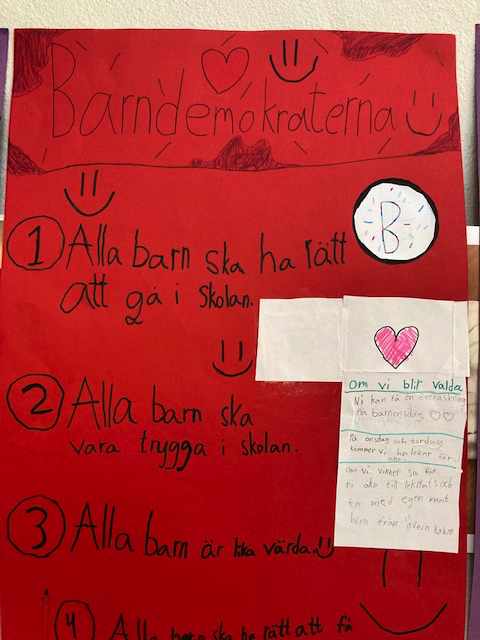 Barndemokraterna
B
1 Alla barn ska ha rätt
att gå i skolan.
2 Alla barn ska
vara trygga i skolan.
3 Alla barn är lika värda
4 Alla barn ska ha rätt att få
Om vi blir valda
Ni kan få en överaskning
På barnensdag.
På onsdag och torsdag
kommer vi ha lekar för
om vi vinner så får
ni åka till lekplats och
ta med egen mat
hem från även kakor